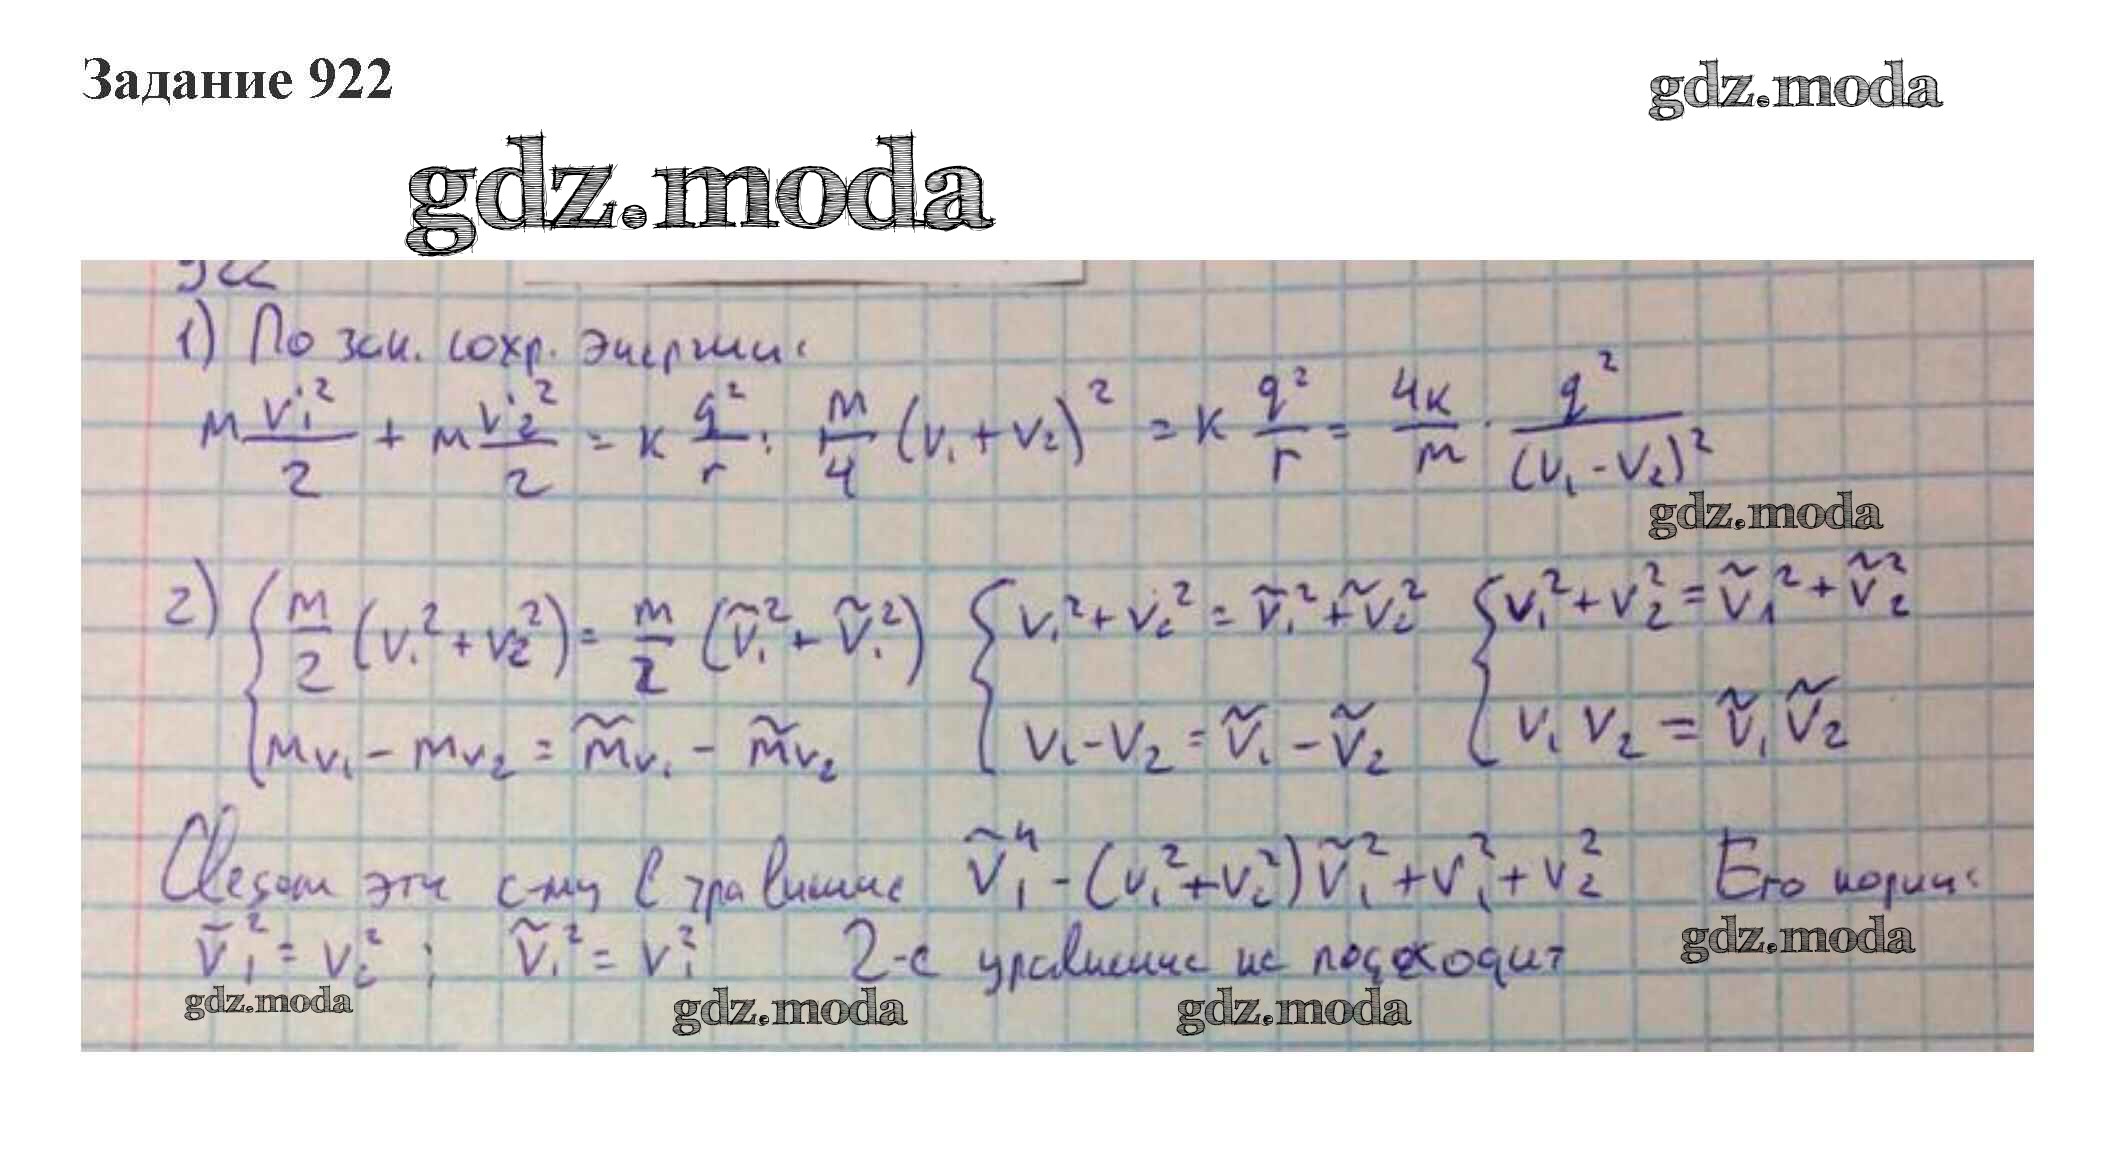 Задание 922
gdz.moda
gdz.moda
922
1) По зак. сохр. энергии:
m v₁'²/2 + m v₂'²/2 = k q²/r ; m/4 (v₁ + v₂)² = k q²/r = 4k/m · q²/(v₁ - v₂)²
gdz.moda
2) { m/2 (v₁² + v₂²) = m/2 (ṽ₁² + ṽ₁²) { v₁² + v₂² = ṽ₁² + ṽ₂² { v₁² + v₂² = ṽ₁² + ṽ₂²
mv₁ - mv₂ = m̃v₁ - m̃v₂ v₁ - v₂ = ṽ₁ - ṽ₂ v₁ v₂ = ṽ₁ ṽ₂
Сведем эту с-му в уравнение ṽ₁⁴ - (v₁² + v₂²) ṽ₁² + v₁² + v₂² Его корни:
ṽ₁² = v₂² ; ṽ₁² = v₁² 2-е уравнение не подходит
gdz.moda
gdz.moda
gdz.moda
gdz.moda